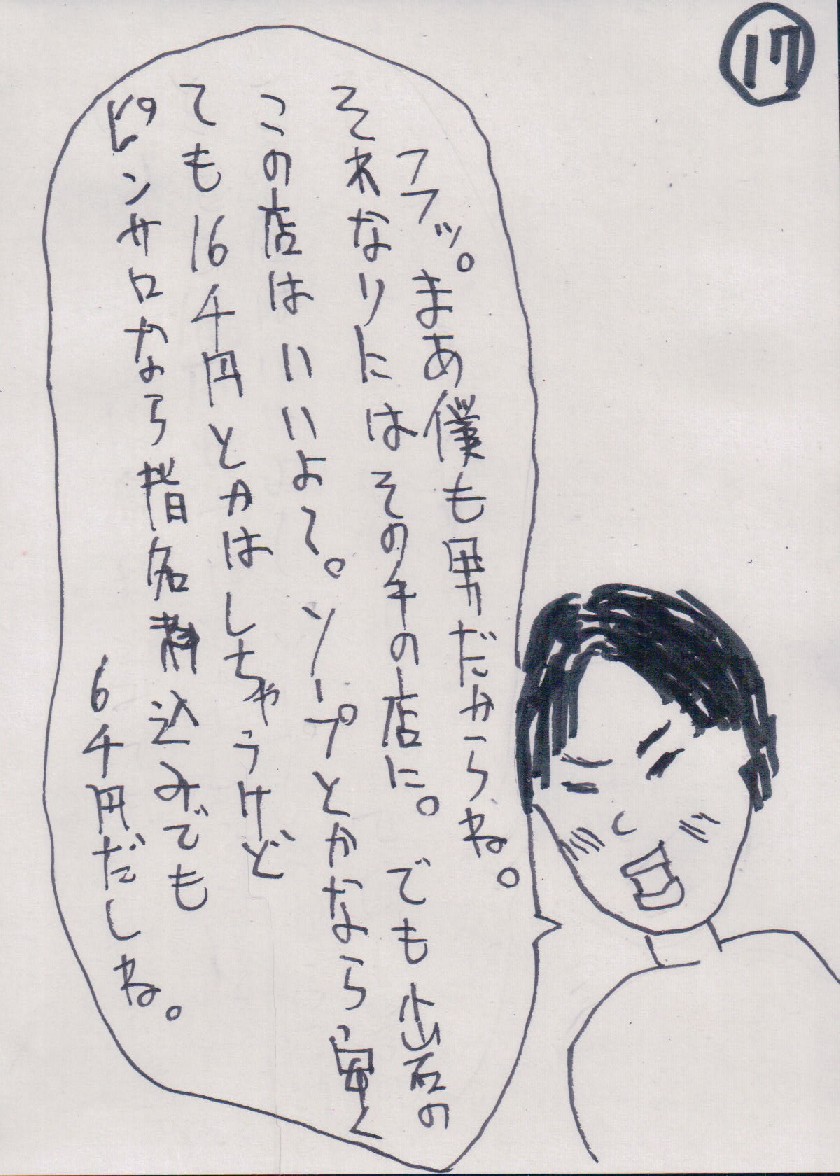 17
フフッ。まあ僕も男だからね。
それなりにはその手の店に。でも岩の
この店はいいよて。ソープとかなら安く
ても16千円とかはしちゃうけど
ピンサロなら指名料込みでも
6千円だしね。